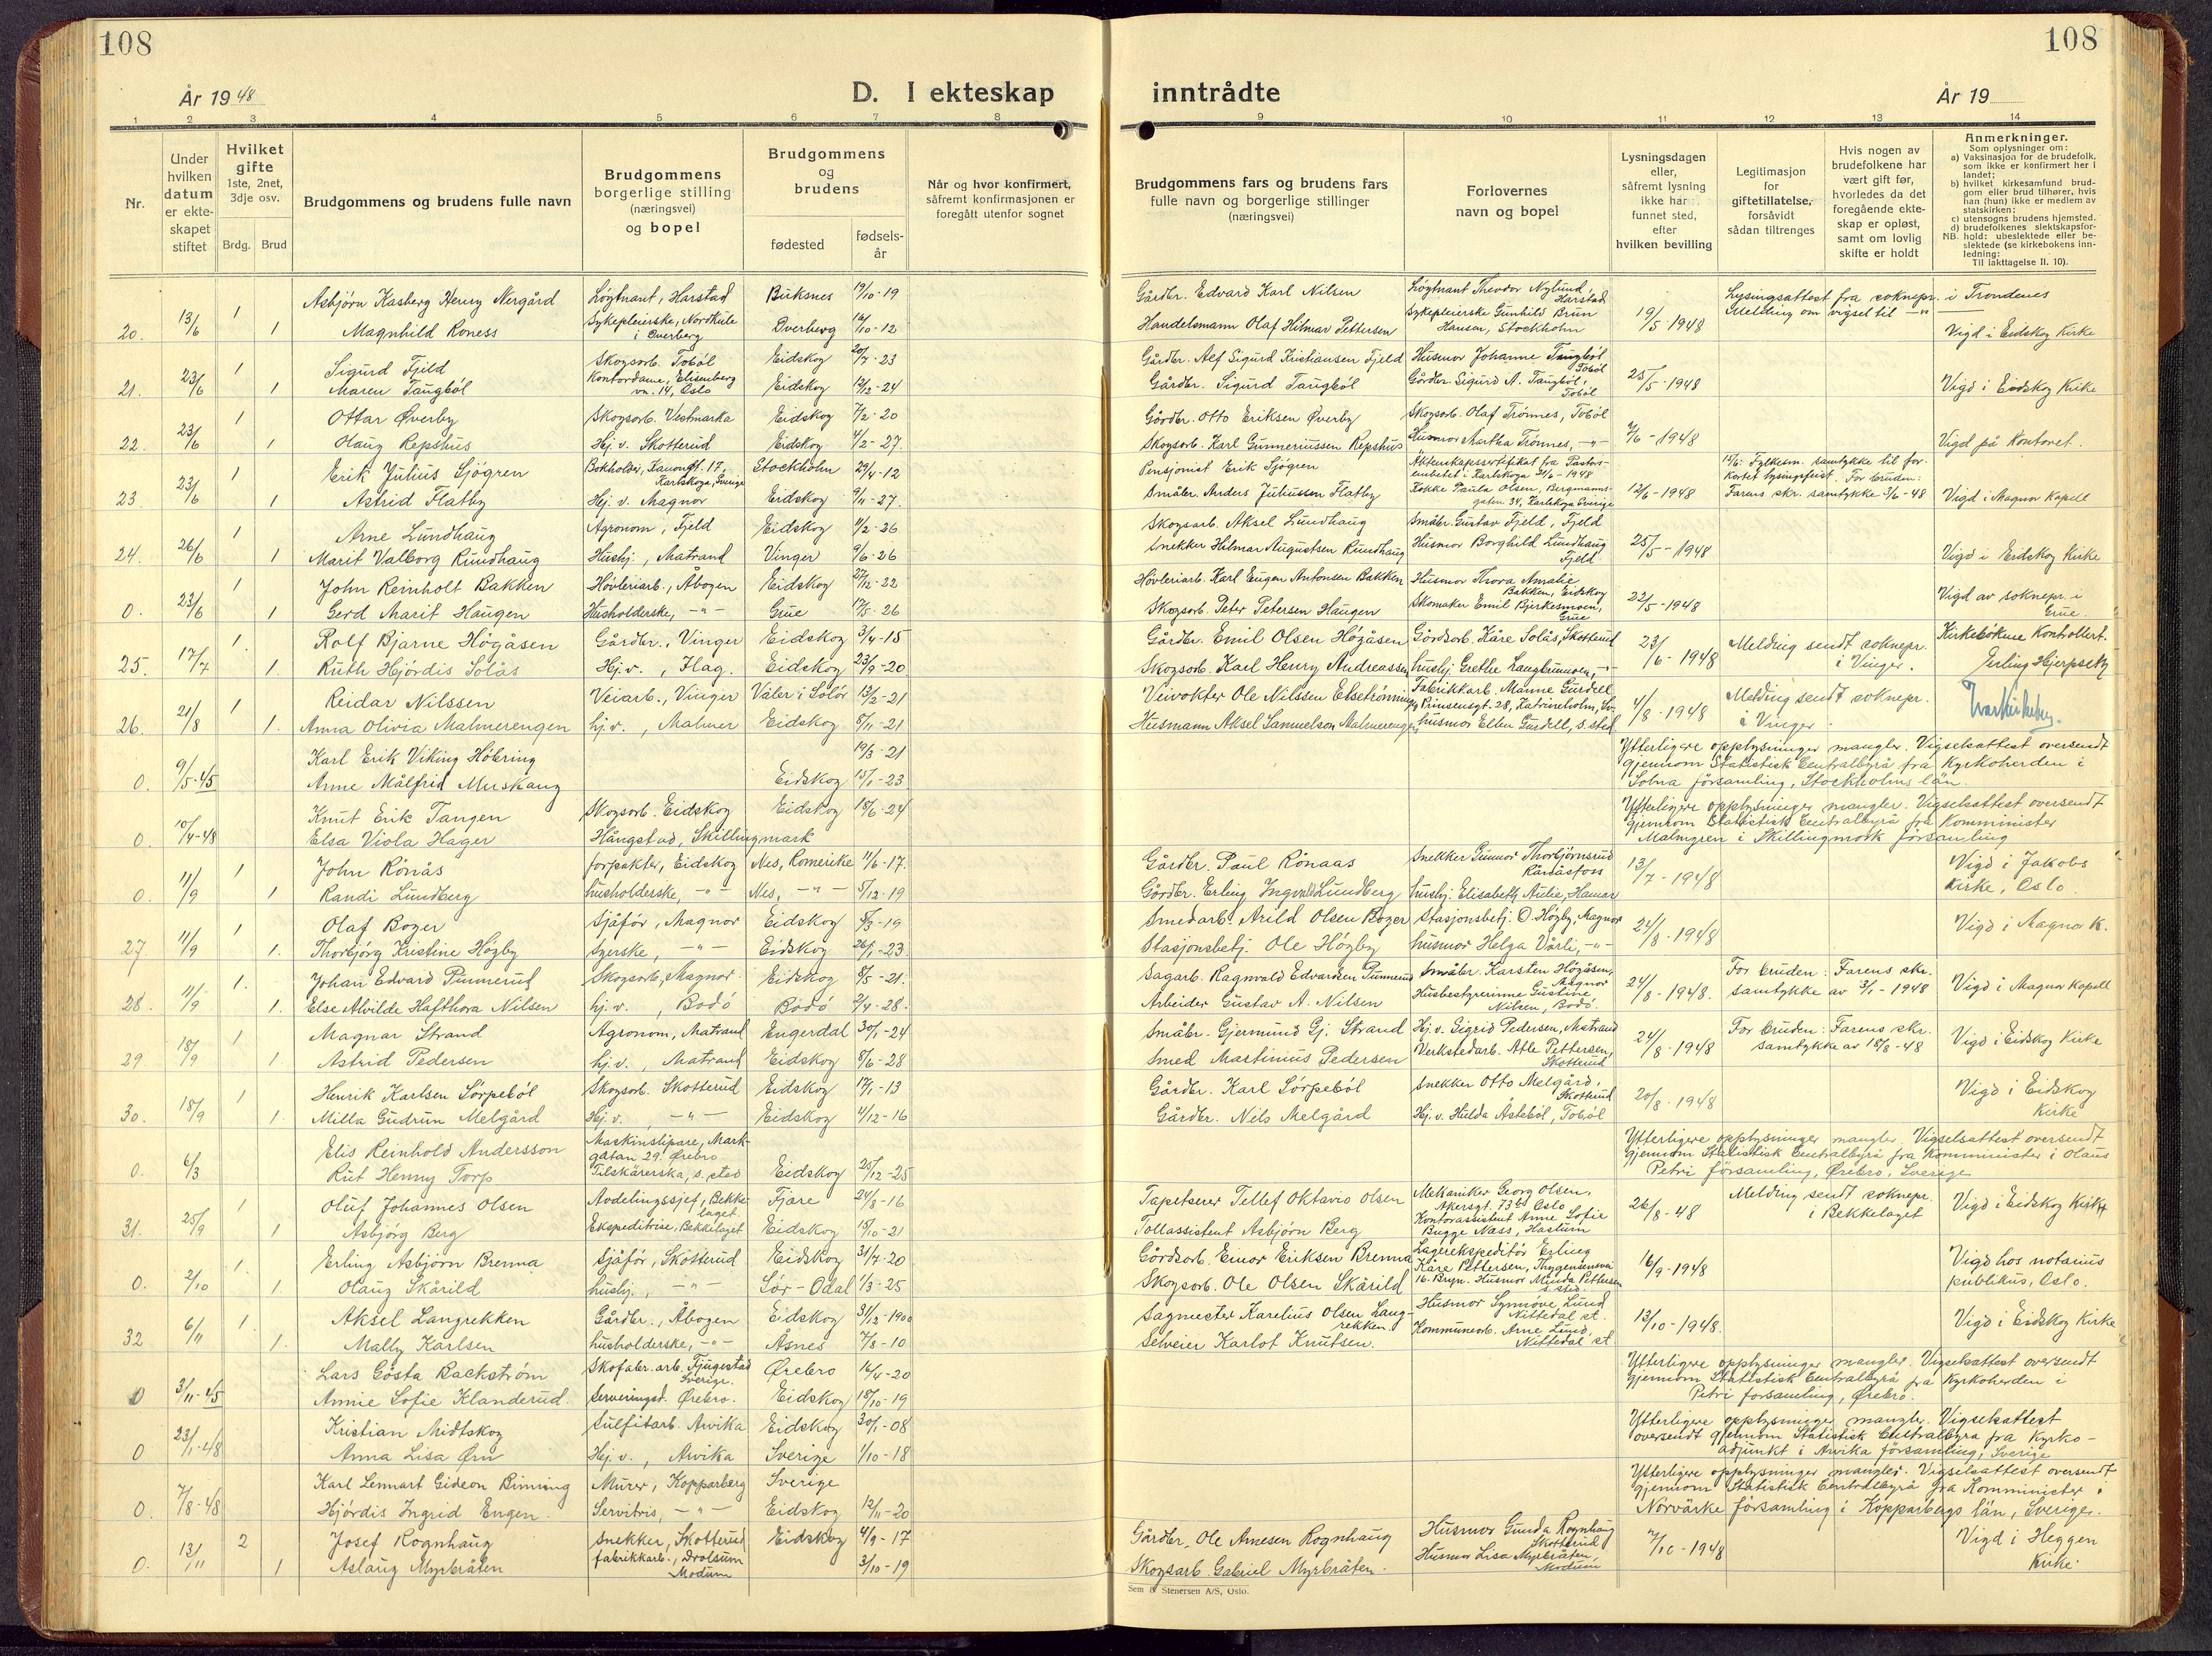 108
108
År 1948
D. I ekteskap inntrådte
År 19
1 2 3 4 5 6 7 8 9 10 11 12 13 14
Nr.
Under hvilken datum er ekteskapet stiftet
Hvilket gifte 1ste, 2net, 3dje osv.
Brdg. Brud
Brudgommens og brudens fulle navn
Brudgommens borgerlige stilling (næringsvei) og bopel
Brudgommens og brudens
fødested
fødselsår
Når og hvor konfirmert, såfremt konfirmasjonen er foregått utenfor sognet
Brudgommens fars og brudens fars fulle navn og borgerlige stillinger (næringsvei)
Forlovernes navn og bopel
Lysningsdagen eller, såfremt lysning ikke har funnet sted, efter hvilken bevilling
Legitimasjon for giftetillatelse, forsåvidt sådan tiltrenges
Hvis nogen av brudefolkene har vært gift før, hvorledes da det foregående ekteskap er opløst, samt om lovlig skifte er holdt
Anmerkninger.
Som oplysninger om:
a) Vaksinasjon for de brudefolk, som ikke er konfirmert her i landet;
b) hvilket kirkesamfund brudgom eller brud tilhører, hvis han (hun) ikke er medlem av statskirken;
c) utensogns brudens hjemsted.
d) brudefolkenes slektskapsforhold: ubeslektede eller beslektede (se kirkebokens innledning:
NB.
Til iakttagelse II. 10).
20. 13/6 1 Asbjörn Kasberg Henry Nergård Löytnant, Harstad Buksnes 19/10-19 Gårdbr. Edvard Karl Nilsen Löytnant Theodor Nylund, Harstad Lysingsattest fra soknepr. i Trondenes
1 Magnhild Roness Sykepleierske, Nordkile i Överberg Dverberg 16/10-12 Handelsmann Olaf Hilmar Pettersen Sykepleierske Gunhild Brun Hansen, Stockholm 19/5-1948 Melding om vigsel til -"- Vigd i Eidskog Kirke
21. 23/6 1 Sigurd Fjeld Skogsarb. Tobøl Eidskog 20/7-23 Gårdbr. Alf Sigurd Kristiansen Fjeld Husmor Johanne Taugbøl Tobøl
1 Maren Taugbøl Kontordame, Elisenbergvn. 14, Oslo Eidskog 12/12-24 Gårdbr. Sigurd Taugbøl Gårdbr. Sigurd A. Taugbøl, Tobøl 25/5-1948 Vigd i Eidskog Kirke
22. 23/6 1 Ottar Øverby Skogsarb. Vestmarka Eidskog 7/2-20 Gårdbr. Otto Eriksen Øverby Skogsarb. Olaf Trönnes, Tobøl
1 Olaug Repshus Hj. v. Skotterud Eidskog 4/2-27 Skogsarb. Karl Gunneriussen Repshus Husmor Martha Trönnes, -"- 7/6-1948 Vigd på Kontoret.
23 23/6 1 Erik Julius Sjögren Bokholder, Kanongt. 17, Karlskoga, Sverige Stockholm 29/4-12 Pensjonist Erik Sjögren Äktenskapssertifikat fra Pastorsembetet i Karlskoga 21/6-1948 15/6: Fylkesm. samtykke til forkortet lysingsfrist. For bruden:
1 Astrid Flatby Hj. v. Magnor Eidskog 9/11-27. Småbr. Anders Juliussen Flatby Kokke Paula Olsen, Bergmannsgaten 34, Karlskoga Sverige 12/6-1948 Farens skr. samtykke 3/6-48 Vigd i Magnor Kapell
24. 26/6 1 Arne Lundhaug Agronom, Fjeld Eidskog 4/2-26 Skogsarb. Aksel Lundhaug Småbr. Gustav Fjeld, Fjeld
1 Marit Valborg Rundhaug Hushj., Matrand Vinger 9/6-26 Snekker Hilmar Augustsen Rundhaug Husmor Borghild Lundhaug Fjeld 25/5-1948 Vigd i Eidskog Kirke
0. 23/6 1 John Reinholt Bakken Hövleriarb., Åbogen Eidskog 27/12-22 Hövleriarb. Karl Eugen Antonsen Bakken Husmor Thora Amalie Bakken, Eidskog
1 Gerd Marit Haugen Husholderske, -"- Grue 17/5-26 Skogsarb. Peter Petersen Haugen Skomaker Emil Bjirkesmoen, Grue 22/5-1948 Vigd av soknepr. i Grue.
25. 17/7 1. Rolf Bjarne Högåsen Gårdbr., Vinger Eidskog 3/4-15 Gårdbr. Emil Olsen Högåsen Gårdsarb. Kåre Solås, Skotterud Kirkebökene Kontrollert.
1. Ruth Hjördis Solås Hj. v., Flag. Eidskog 23/9-20 Skogsarb. Karl Henry Andreassen hushj. Grethe Langbrunoen, -"- 23/6-1948 Melding sendt soknepr. i Vinger. Erling Hjerpseth
26. 21/8 1 Reidar Nilssen Veiarb., Vinger Våler i Solör 13/2-21 Veivokter Ole Nilssen Elsetrönning Fabrikkarb. Manne Gurdell, Prinsensgt. 28, Katrineholm, Sv.
1. Anna Olivia Malmerengen hj. v., Malmer Eidskog 8/11-21 Husmann Aksel Samuelson Malmerengen husmor Ellen Gurdell, s. sted 4/8-1948 Melding sendt soknepr. i Vinger
0. 9/5-45 Karl Erik Viking Höbring 19/3-21 Ytterligere opplysninger mangler. Vigselsattest oversendt
Anne Målfrid Muskaug Eidskog 15/1-23 gjennom Statistisk Centralbyrå fra Kyrkoherden i Solna församling, Stockholms län.
0. 10/4-48 Knut Erik Tangen Skogsarb. Eidskog Eidskog 18/6-24 Ytterligere opplysninger mangler. Vigselsattest oversendt
Elsa Viola Hager Hångstad, Skillingmark gjennom Statistisk Centralbyrå fra Komminister Malmgren i Skillingmark församling
0. 11/9 1 John Rönås forpakter, Eidskog Nes, Romerike 11/6-17. Gårdbr. Paul Rönaas Snekker Gunnar Thorbjörnsrud Rånåsfoss
1 Randi Lundberg husholderske, -"- Nes, -"- 5/12-19 Gårdbr. Erling Ingvald Lundberg hushj. Elisabeth Aulie, Hamar 13/7-1948 Vigd i Jakobs Kirke, Oslo.
27. 11/9 1 Olaf Boger Sjåför, Magnor Eidskog 8/3-19 Smedarb. Arild Olsen Boger Stasjonsbetj. O. Högby, Magnor
1. Thorbjörg Kristine Högby Syerske, -"- Eidskog 26/1-23 Stasjonsbetj. Ole Högby husmor Helga Vårli, -"- 24/8-1948 Vigd i Magnor K.
28. 11/9 1. Johan Edvard Punnerud Skogsarb, Magnor Eidskog 8/5-21. Sagarb. Ragnvald Edvardsen Punnerud Småbr. Karsten Högåsen, Magnor
1. Else Alvilde Hafthora Nilsen hj. v., Bodö Bodö 2/4-28. Arbeider Gustav A. Nilsen Husbestyrerinne Gustine Nilsen, Bodö. 24/8-1948. For bruden: Farens skr. samtykke av 3/1-1948 Vigd i Magnor Kapell
29 18/9 1 Magnar Strand Agronom, Matrand Engerdal 30/1-24 Småbr. Gjermund Gj. Strand Hj. v. Sigrid Pedersen, Matrand
1. Astrid Pedersen hj. v., Matrand Eidskog 8/6-28 Smed Martinius Pedersen Verkstedarb. Atle Pettersen, Skotterud 24/8-1948 For bruden: Farens skr. samtykke av 18/8-48 Vigd i Eidskog Kirke
30. 18/9 1 Henrik Karlsen Sörpeböl Skogsarb. Skotterud Eidskog 17/1-13 Gårdbr. Karl Sörpeböl Snekker Otto Melgård, Skotterud
1. Milla Gudrun Melgård Hj. v., -"- Eidskog 4/12-16 Gårdbr. Nils Melgård Hj. v. Hulda Åsleböl, Toböl 20/8-1948 Vigd i Eidskog Kirke
0. 6/3 Elis Reinhold Andersson Maskinslipare, Markgatan 29. Örebro Ytterligere opplysninger mangler. Vigselsattest oversendt
Rut Henny Torp Tilskärerska, s. sted Eidskog 25/12-25 gjennom Statistisk Centralbyrå fra Komminister i Olaus Petri församling, Örebro, Sverige
31. 25/9 1 Oluf Johannes Olsen Avdelingssjef, Bekkelaget. Fjære 24/8-16 Tapetserer Tellef Oktavio Olsen Mekaniker Georg Olsen, Akersgt. 73bI Oslo
1 Asbjörg Berg Ekspeditrise, Bekkelaget Eidskog 15/10-21 Tollassistent Asbjörn Berg Kontorassistent Anne Sofie Bugge Næss, Haslum 26/8-48 Melding sendt soknepr. i Bekkelaget Vigd i Eidskog Kirke
0. 2/10 1. Erling Asbjörn Brenna Sjåför, Skotterud Eidskog 31/7-20 Gårdsarb. Einar Eriksen Brenna Lagerekspeditör Erling Kåre Pettersen, Thygensensvei
1. Olaug Skårild hushj., -"- Sör-Odal 1/3-25 Skogsarb. Ole Olsen Skårild 16. Bryn. Husmor Minda Pettersen s. sted. 16/9-1948 Vigd hos notarius publikus, Oslo.
32 6/11 1. Aksel Langrekken Gårdbr., Åbogen Eidskog 31/12-1900 Sagmester Karelius Olsen Langrekken Husmor Synnöve Lund Nittedal st.
1. Mally Karlsen husholderske, -"- Åsnes 7/8-10 Selveier Karlot Knutsen. Kommunearb. Arne Lund, Nittedal st 13/10-1948. Vigd i Eidskog Kirke
0 3/11-45 Lars Gösta Backström Skofabr. arb. Fjugestad Sverige. Örebro 16/4-20 Ytterligere opplysninger mangler. Vigselsattest oversendt
Annie Sofie Klanderud. Serveringsd. Örebro. Eidskog 18/10-19 gjennom Statistisk Centralbyrå fra Kyrkoherden i Petri församling, Örebro.
0 23/1-48 Kristian Midtskog Sulfitarb. Arvika Eidskog 30/1-08 Ytterligere opplysninger mangler. Vigselsattest
Anna Lisa Örn Hj. v., Arvika Sverige 1/10-18 oversendt gjennom Statistisk Centralbyrå fra Kyrkoadjunkt i Arvika församling, Sverige
0. 7/8-48 Karl Lennart Gideon Binning Murer, Kopparberg Sverige Ytterligere opplysninger mangler. Vigselsattest oversendt
Hjördis Ingrid Engen. Servitris, -"- Eidskog 12/11-20 gjennom Statistisk Centralbyrå fra Komminister i Norrvärke församling i Kopparbergs län, Sverige.
0. 13/11 2 Josef Rognhaug Snekker, Skotterud Eidskog 4/9-17 Gårdbr. Ole Arnesen Rognhaug Husmor Gunda Rognhaug Skotterud
1 Aslaug Myrbråten fabrikkarb., Drolsum Modum 3/10-19 Skogsarb. Gabriel Myrbråten. Husmor Lisa Myrbråten, Modum 7/10-1948 Vigd i Heggen Kirke
Sem & Stenersen A/S, Oslo.